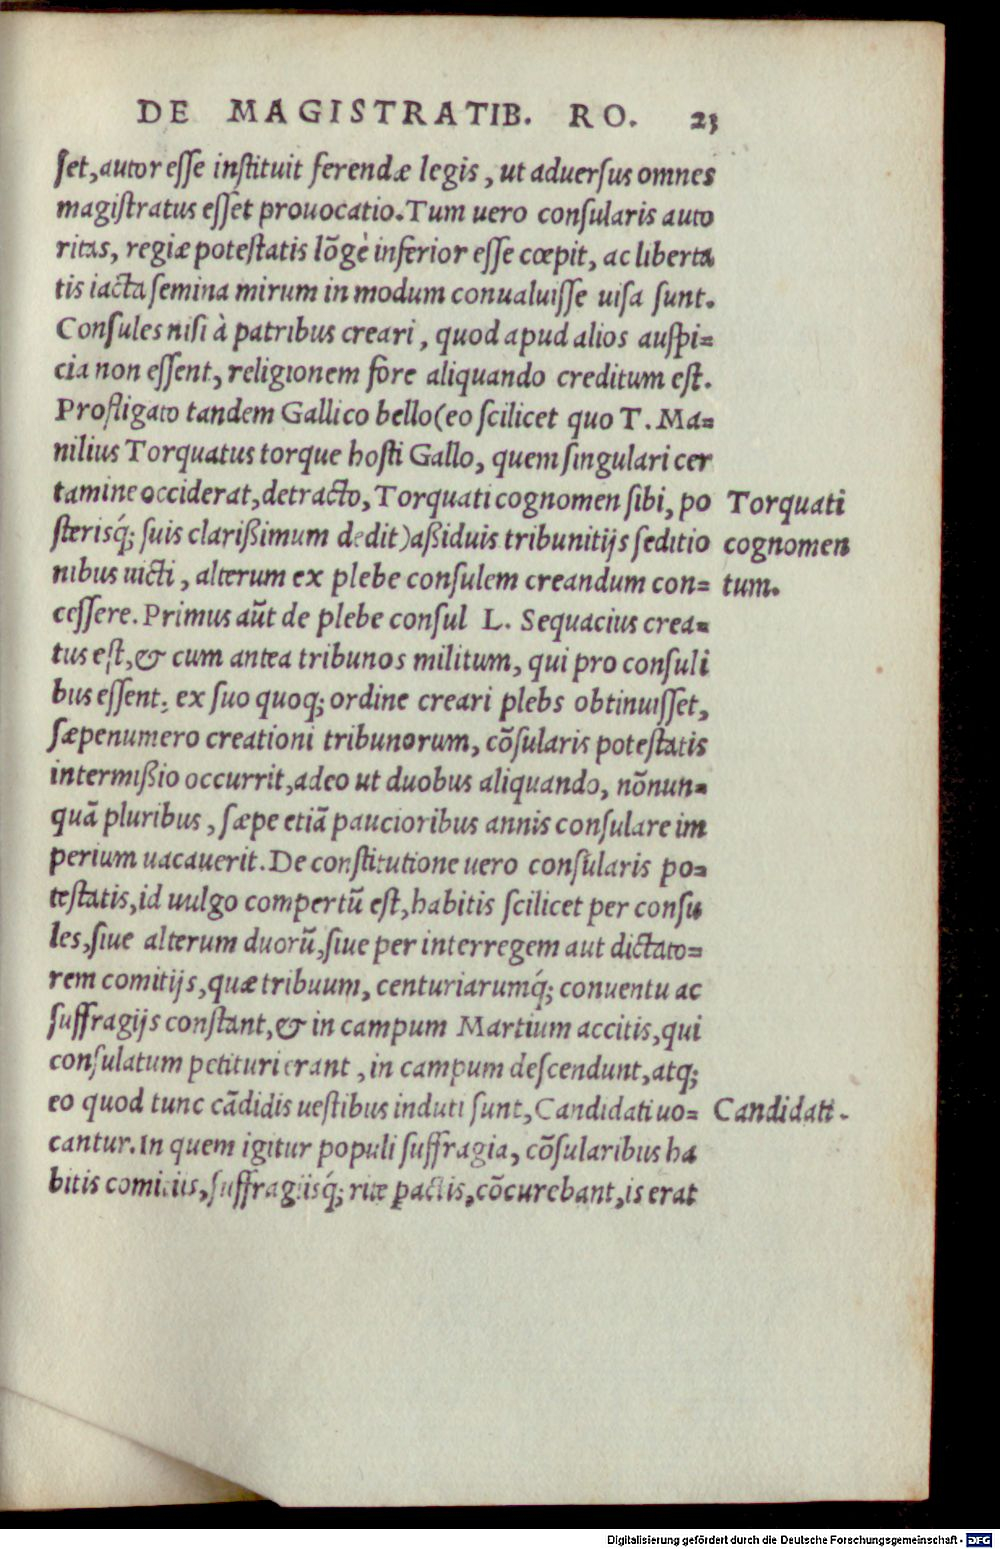 DE MAGISTRATIB. RO. 23
set, autor esse instituit ferendæ legis, ut aduersus omnes
magistratus esset prouocatio. Tum uero consularis auto
ritas, regiæ potestatis lõgè inferior esse cœpit, ac liberta
tis iacta semina mirum in modum conualuisse uisa sunt.
Consules nisi à patribus creari, quod apud alios auspi=
cia non essent, religionem fore aliquando creditum est.
Profligato tandem Gallico bello (eo scilicet quo T. Ma=
nilius Torquatus torque hosti Gallo, quem singulari cer
tamine occiderat, detracto, Torquati cognomen sibi, po
sterisq́; suis clarißimum dedit) aßiduis tribunitijs seditio
nibus uicti, alterum ex plebe consulem creandum con=
cessere. Primus aũt de plebe consul L. Sequacius crea=
tus est, & cum antea tribunos militum, qui pro consuli
bus essent, ex suo quoq; ordine creari plebs obtinuisset,
sæpenumero creationi tribunorum, cõsularis potestatis
intermißio occurrit, adeo ut duobus aliquando, nõnun=
quã pluribus, sæpe etiã paucioribus annis consulare im
perium uacauerit. De constitutione uero consularis po=
testatis, id uulgo compertũ est, habitis scilicet per consu
les, siue alterum duorũ, siue per interregem aut dictato=
rem comitijs, quæ tribuum, centuriarumq́; conuentu ac
suffragijs constant, & in campum Martium accitis, qui
consulatum petituri erant, in campum descendunt, atq;
eo quod tunc cãdidis uestibus induti sunt, Candidati uo=
cantur. In quem igitur populi suffragia, cõsularibus ha
bitis comitiis, suffragiisq́; rite pactis, cõcurebant, is erat
Torquati
cognomen
tum.
Candidati.
Digitalisierung gefördert durch die Deutsche Forschungsgemeinschaft - DFG